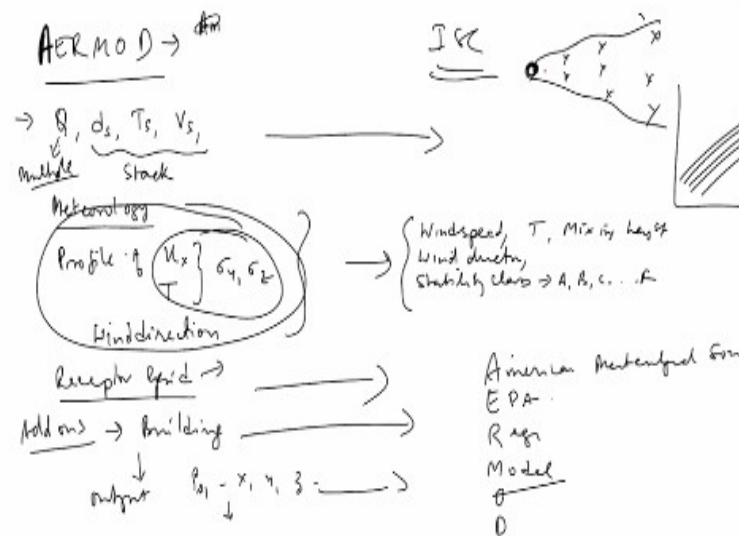 AERMOD →
ISC
→ Q, ds, Ts, Vs,
Multiple Stack
Meteorology
Profile of Ux } σy, σz
T
Winddirection
Windspeed, T, Mixing height
Wind directn,
Stability class → A, B, C....F
Receptor Grid →
Add ons → Building
output - x, y, z -
American
EPA
Model
D